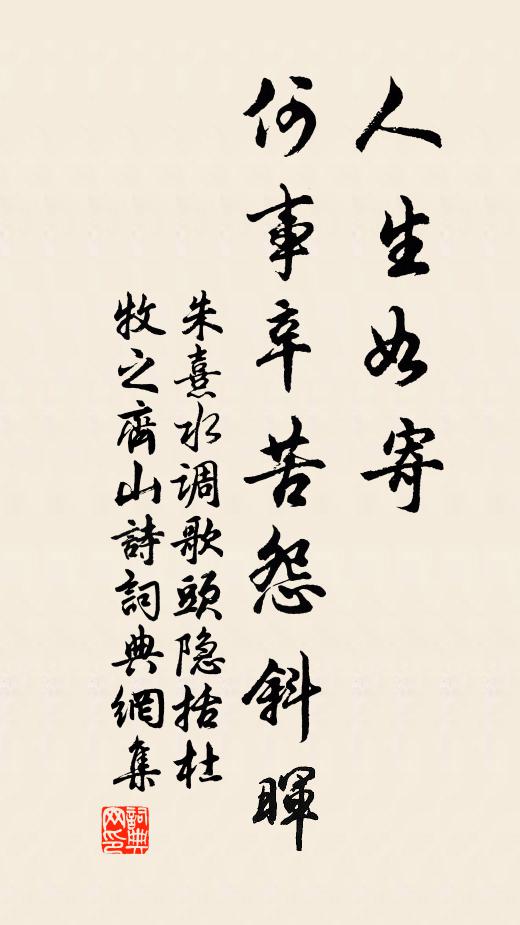 人生如寄
何事辛苦怨斜暉
朱熹水调歌頭隐括杜
牧之齊山詩詞典網集
詞典網印